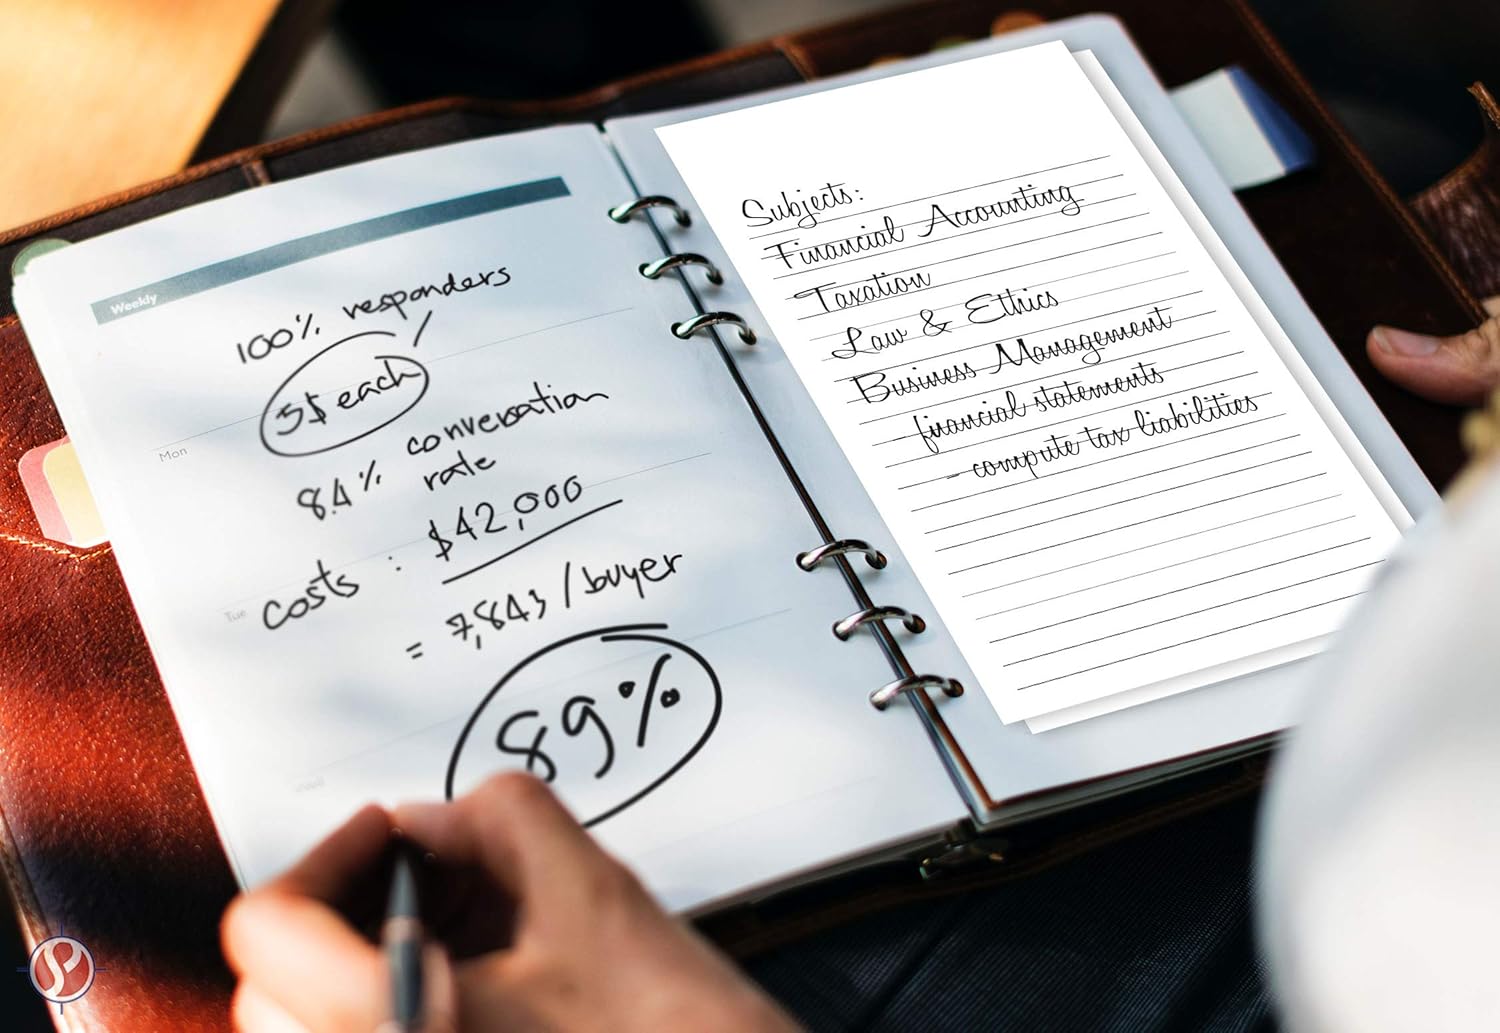 Weekly
100% responders
5$ each
8.4% conversation
rate
costs : $42,000
= 7,843 / buyer
89%
Mon
Tue
Subjects:
Financial Accounting
Taxation
Law & Ethics
Business Management
- financial statements
- compute tax liabilities